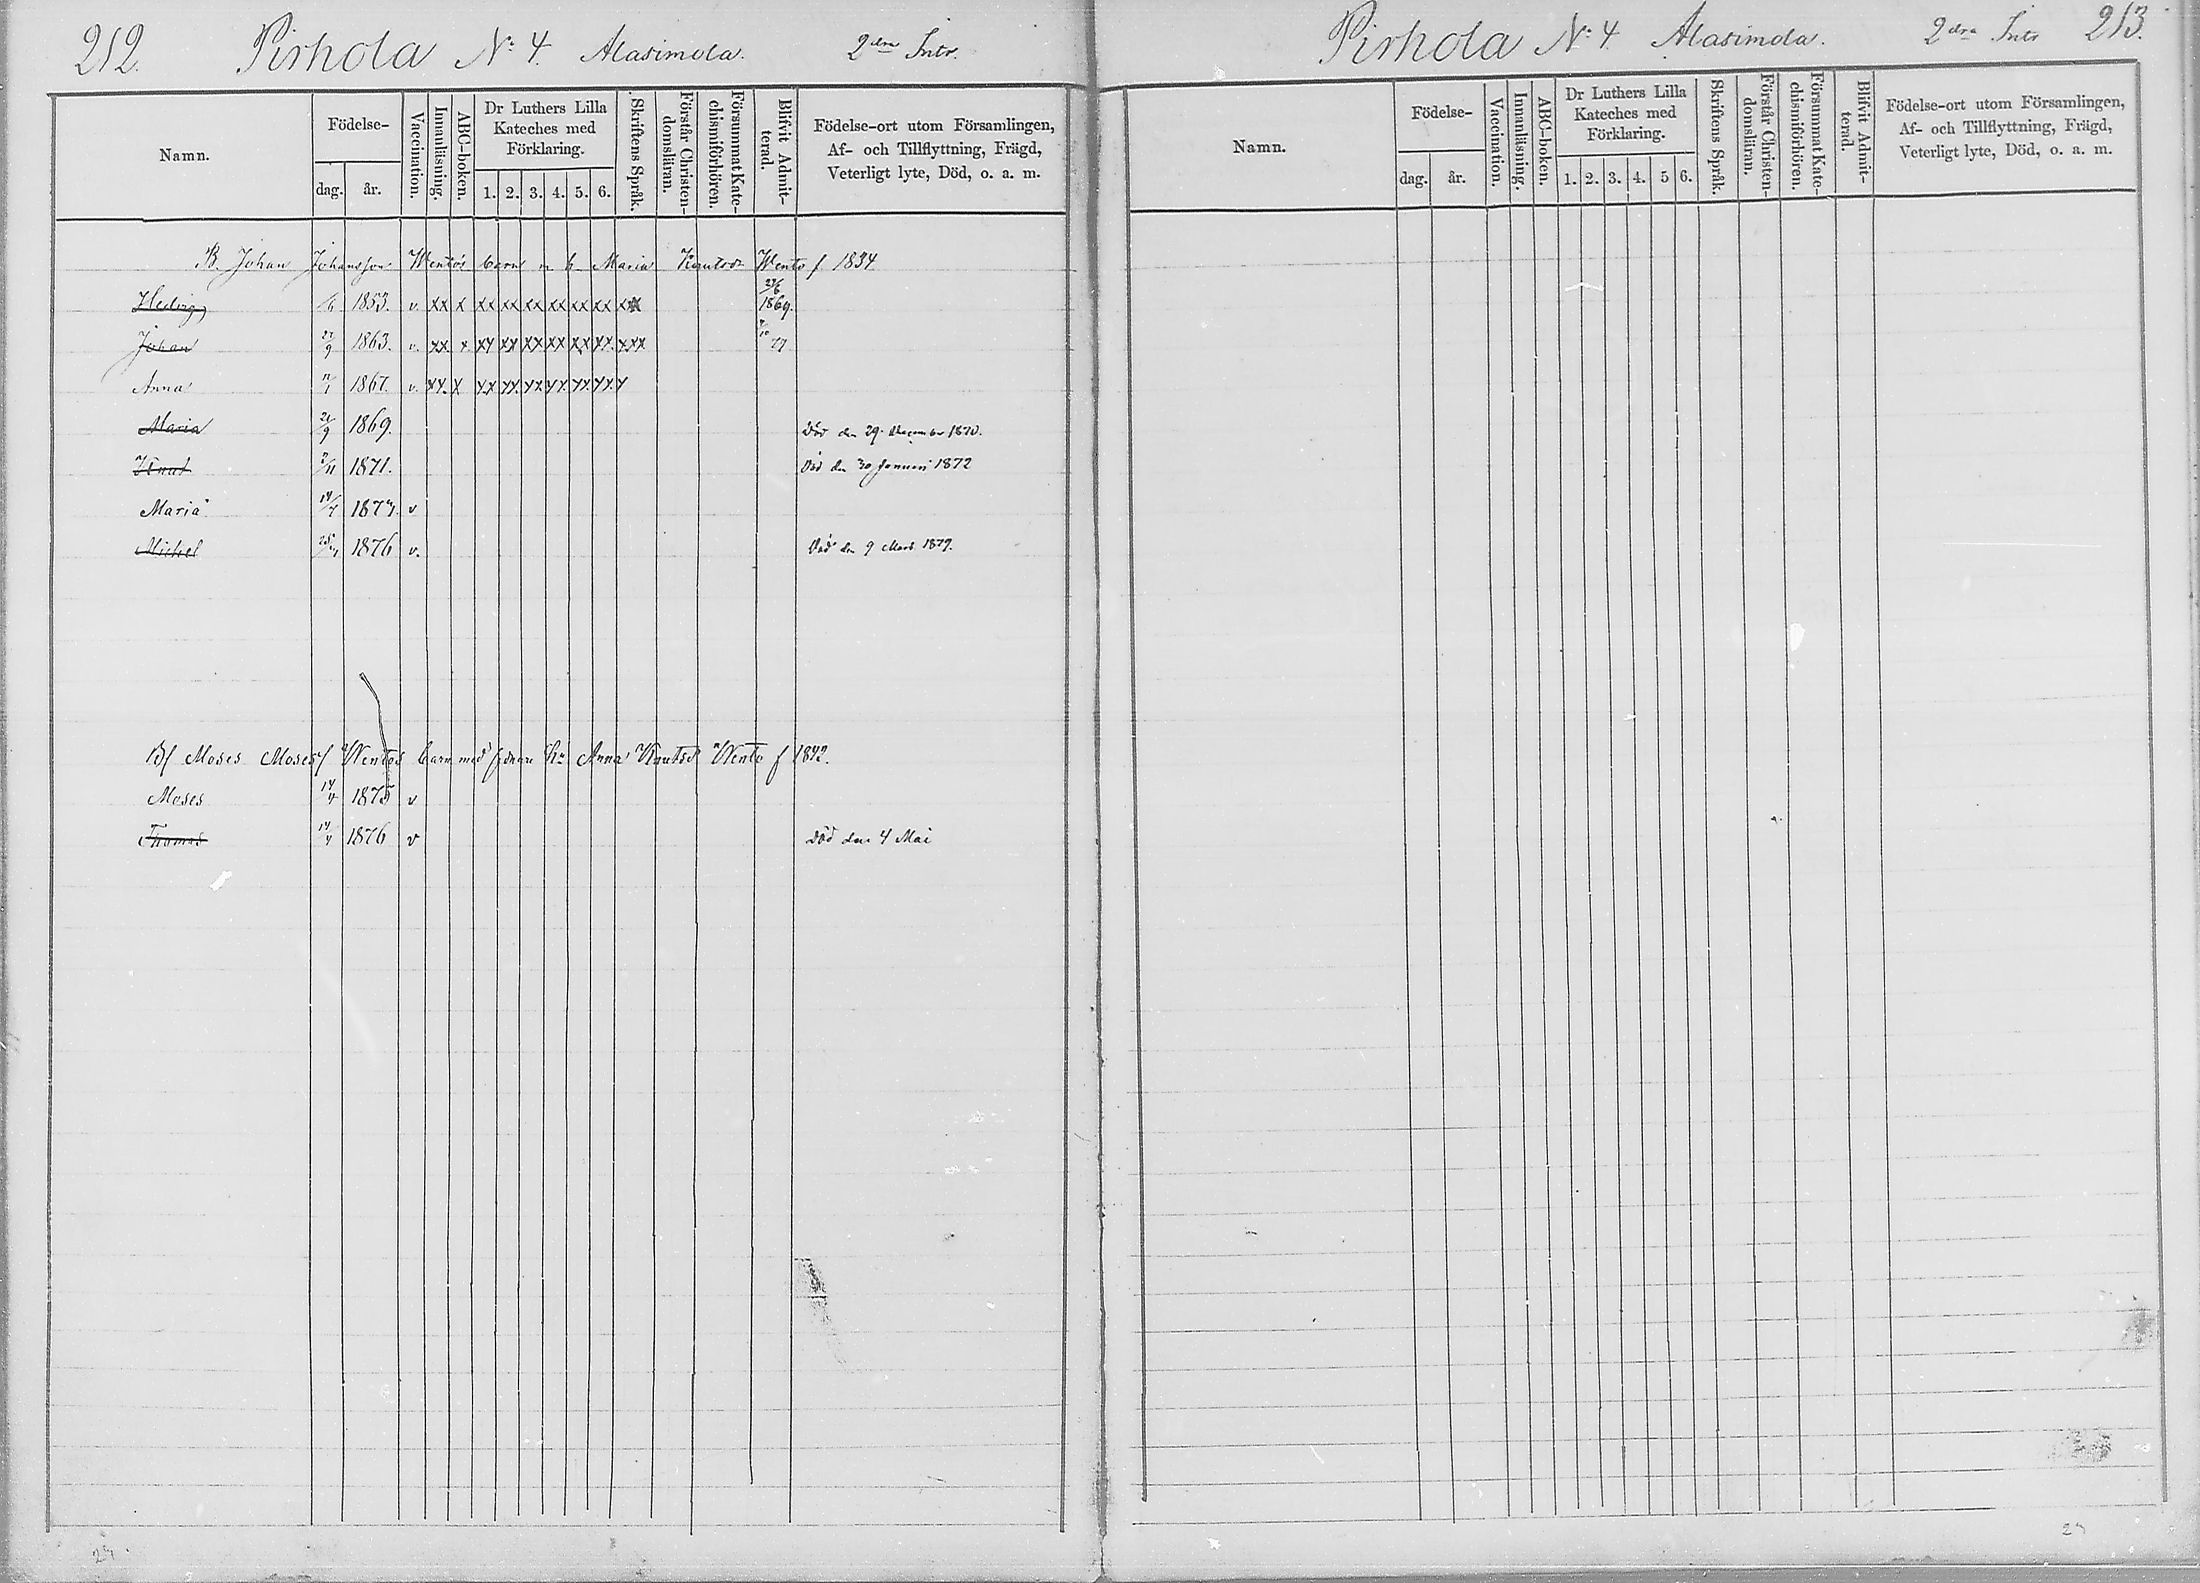 212. Pirhola No 4. Alasimola. 2dra Intr.
Namn. Födelse- dag. år. Vaccination. Innanläsning. ABC-boken. Dr Luthers Lilla Kateches med Förklaring. 1. 2. 3. 4. 5. 6. Skriftens Språk. Förstår Christendomsläran. Försummat Katechismiförhören. Blifvit Admitterad. Födelse-ort utom Församlingen, Af- och Tillflyttning, Frägd, Veterligt lyte, Död, o. a. m.
B. Johan Johansson Wentos barn m h. Maria Knutsdr Wento f 1834
Hedvig 1853. v. xx x xx xx xx xx xx xx 1869.
Johan 27/9 1863. v. xx. x xx xx xx xx xx xx. xxx 77
Anna 1867. v. xx. x xx xx. xx xx xx. xx. x
Maria 21/9 1869. Död den 29. December 1870.
Knut 2/11 1871. Död den 30 Januari 1872
Maria 14/7 1874. v
Michel 1876 v. Död den 9 Mars 1879.
Bf Moses Mosesf Wentos barn med Anna Knutsd Wento f 1842.
Moses 14/4 1875 v
Thomas 14/4 1876 v Död den 4 Mai
24
Pirhola No 4 Alasimola. 2dra Intr 213.
Namn. Födelse- dag. år. Vaccination. Innanläsning. ABC-boken. Dr Luthers Lilla Kateches med Förklaring. 1. 2. 3. 4. 5 6. Skriftens Språk. Förstår Christendomsläran. Försummat Katechismiförhören. Blifvit Admitterad. Födelse-ort utom Församlingen, Af- och Tillflyttning, Frägd, Veterligt lyte, Död, o. a. m.